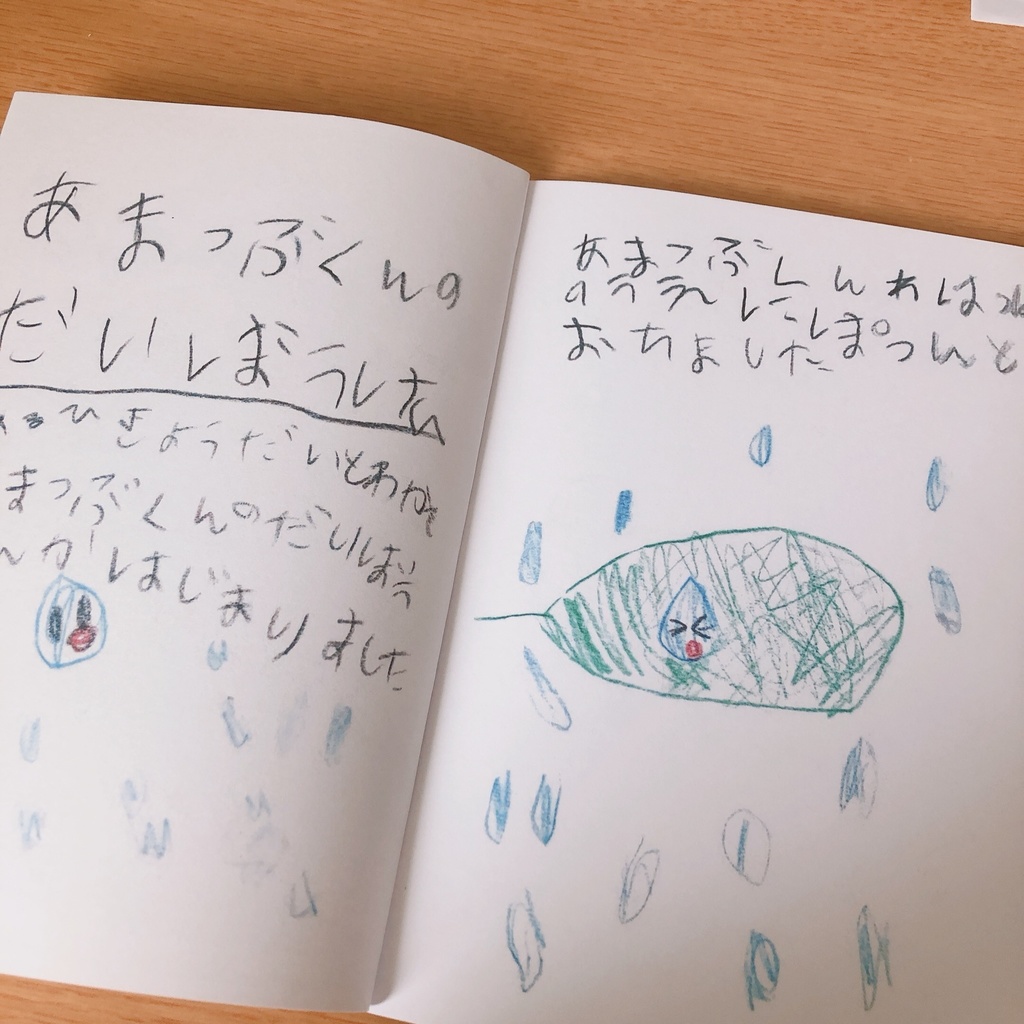 あまつぶくんの
だいしぼうけん
あるひきょうだいとわかれ
まつぶくんのだいしぼう
んがはじまりました
あまつぶくんわは
のうえにし
おちましたぽつんと